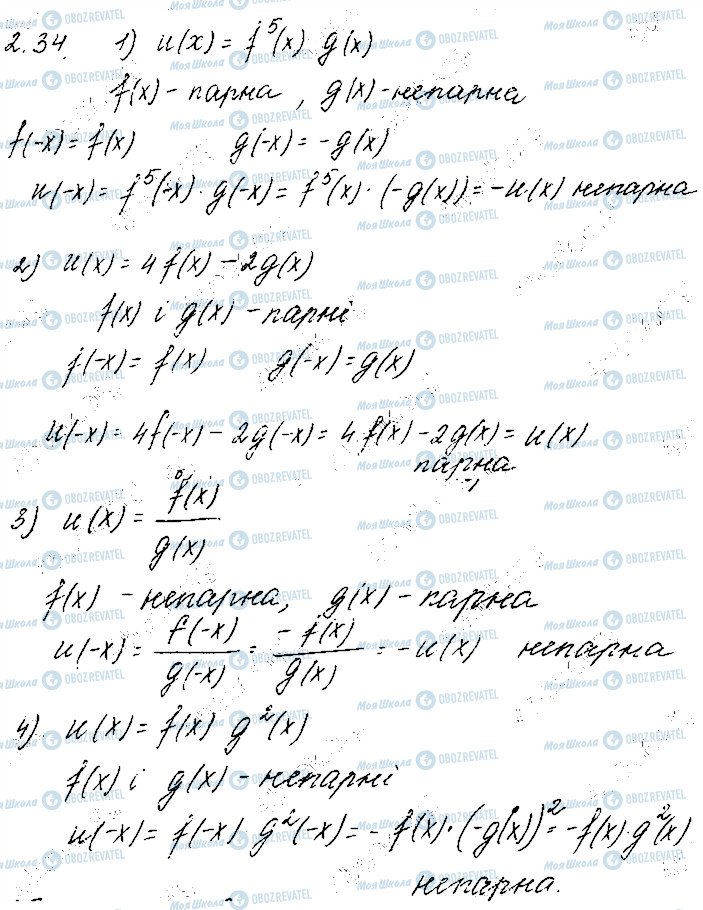 2.34. 1) u(x) = f⁵(x) g(x)
f(x) - парна, g(x) - непарна
f(-x) = f(x) g(-x) = -g(x)
u(-x) = f⁵(-x) · g(-x) = f⁵(x) · (-g(x)) = -u(x) непарна
2) u(x) = 4f(x) - 2g(x)
f(x) і g(x) - парні
f(-x) = f(x) g(-x) = g(x)
u(-x) = 4f(-x) - 2g(-x) = 4f(x) - 2g(x) = u(x)
парна
3) u(x) = f(x)/g(x)
f(x) - непарна, g(x) - парна
u(-x) = f(-x)/g(-x) = -f(x)/g(x) = -u(x) непарна
4) u(x) = f(x) g²(x)
f(x) і g(x) - непарні
u(-x) = f(-x) g²(-x) = -f(x) · (-g(x))² = -f(x) · g²(x)
непарна.
Моя Школа OBOZREVATEL